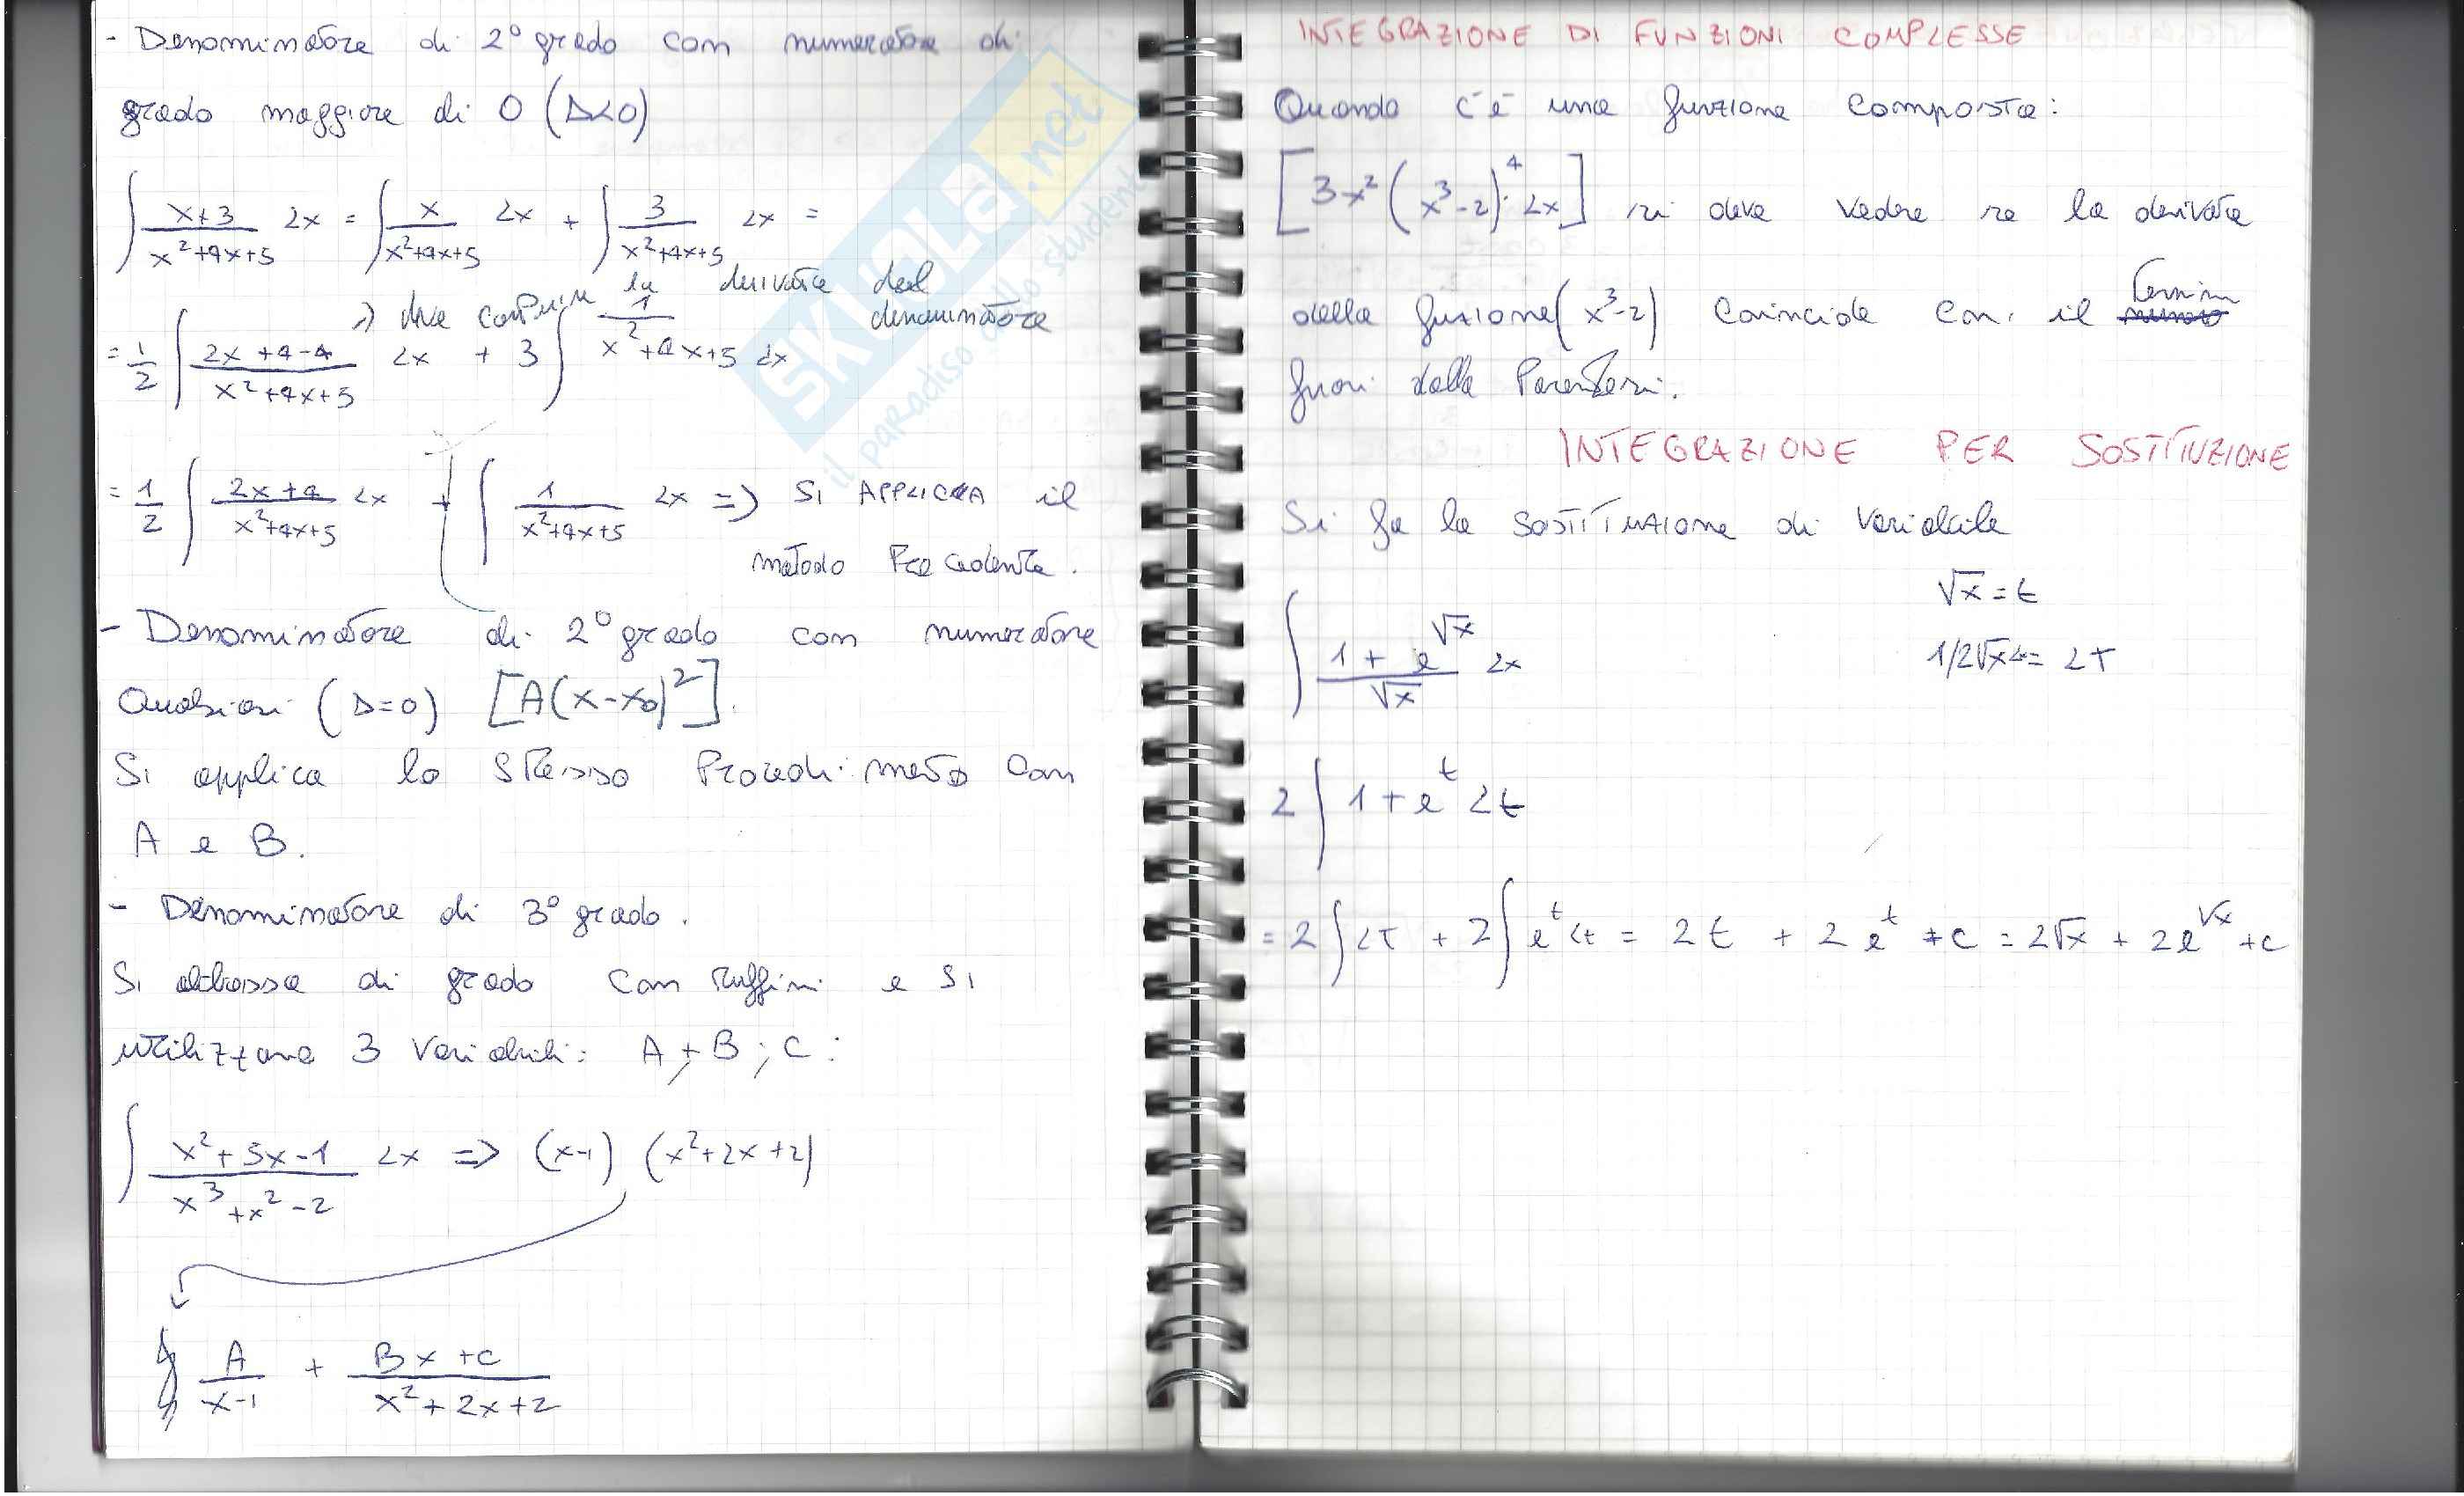 - Denominatore di 2° grado con numeratore di
grado maggiore di 0 (Δ<0)
∫ x+3 / x²+4x+5 dx = ∫ x / x²+4x+5 dx + ∫ 3 / x²+4x+5 dx =
=> deve comparire la derivata del denominatore
= 1/2 ∫ 2x+4-4 / x²+4x+5 dx + 3 ∫ 1 / x²+4x+5 dx
= 1/2 ∫ 2x+4 / x²+4x+5 dx + ∫ 1 / x²+4x+5 dx => SI APPLICA il
metodo Precedente.
- Denominatore di 2° grado con numeratore
Qualsiasi (Δ=0) [A(x-x₀)²].
Si applica lo stesso Procedimento con
A e B.
- Denominatore di 3° grado.
Si abbassa di grado con Ruffini e si
utilizzano 3 variabili: A; B; C:
∫ x²+5x-1 / x³+x²-2 dx => (x-1) (x²+2x+2)
∫ A / x-1 + Bx+c / x²+2x+2
INTEGRAZIONE DI FUNZIONI COMPLESSE
Quando c'è una funzione composta:
[3x² (x³-2)⁴· dx] si deve vedere se la derivata
della funzione (x³-2) coincide con il termine
fuori dalla Parentesi.
INTEGRAZIONE PER SOSTITUZIONE
Si fa la sostituzione di variabile
√x = t
∫ 1+e^√x / √x dx
1/2√x dx = dt
2 ∫ 1+e^t dt
= 2 ∫ dt + 2 ∫ e^t dt = 2t + 2e^t + c = 2√x + 2e^√x + c
SKUOLA.net
il paradiso dello studente